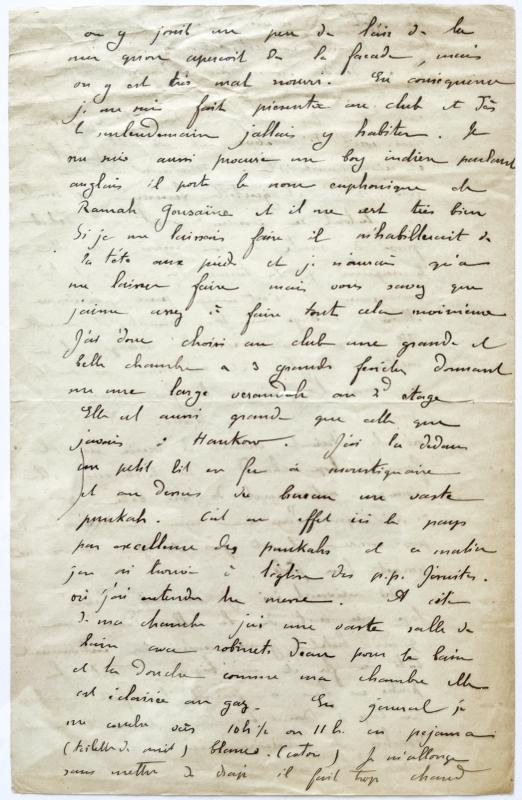 on y jouit un peu de l'air de la
mer qu'on aperçoit de la façade, mais
on y est très mal nourri. En conséquence
je me suis fait présenter au club et dès
le surlendemain j'allais y habiter. Je
me suis aussi procuré un boy indien parlant
anglais il porte le nom euphonique de
Ramah Goussaïne et il me sert très bien
Si je me laissais faire il m'habillerait de
la tête aux pieds et je n'aurais qu'à
me laisser faire mais vous savez que
j'aime assez à faire tout cela moi même
J'ai donc choisi au club une grande et
belle chambre à 3 grandes fenêtres donnant
sur une large verandah au 2d étage
Elle est aussi grande que celle que
j'avais à Hankow. J'ai là dedans
un petit lit en fer à moustiquaire
et au dessus du bureau une vaste
punkah. C'est en effet ici le pays
par excellence des punkahs et ce matin
j'en ai trouvé à l'église des p.p. Jésuites.
où j'ai entendu la messe. A côté
de ma chambre j'ai une vaste salle de
bain avec robinets d'eau pour le bain
et la douche comme ma chambre elle
est éclairée au gaz. En général je
me couche vers 10h ½ ou 11 h. en pejama
(toilette de nuit) blanc. (coton) Je m'allonge
sans mettre de drap il fait trop chaud